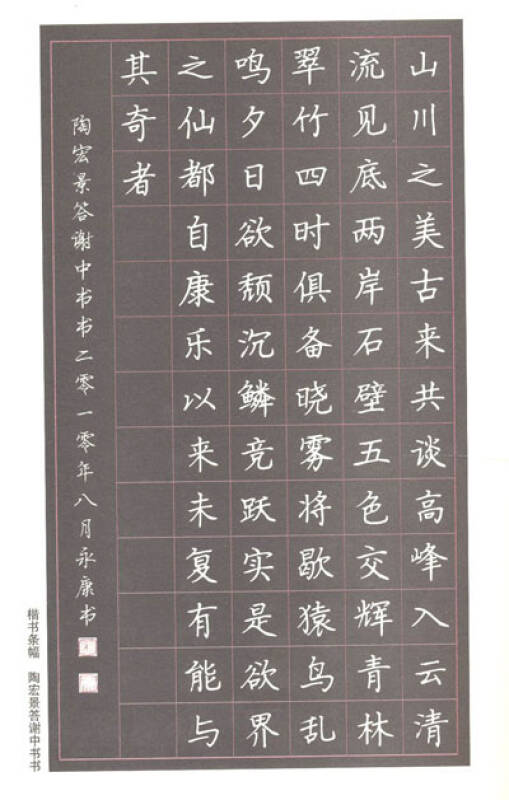 山川之美古来共谈高峰入云清
流见底两岸石壁五色交辉青林
翠竹四时俱备晓雾将歇猿鸟乱
鸣夕日欲颓沉鳞竞跃实是欲界
之仙都自康乐以来未复有能与
其奇者
陶宏景答谢中书书二零一零年八月永康书
楷书条幅 陶宏景答谢中书书